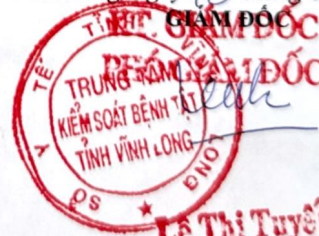 GIÁM ĐỐC
KT. GIÁM ĐỐC
PHÓ GIÁM ĐỐC
SỞ Y TẾ TỈNH VĨNH LONG
TRUNG TÂM
KIỂM SOÁT BỆNH TẬT
TỈNH VĨNH LONG
★
Lê Thị Tuyế